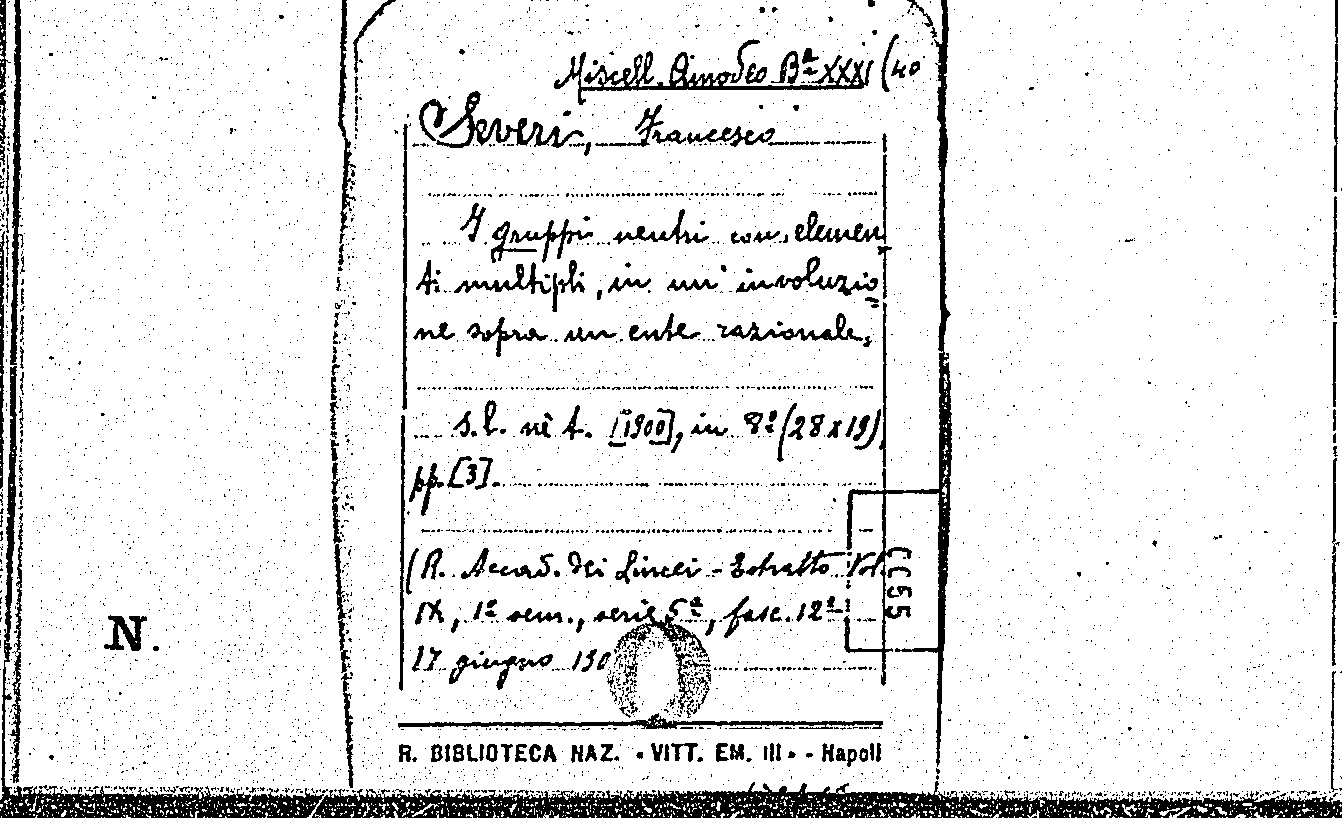 Miscell. Amodeo Bª XXXI (40
Severi, Francesco
I gruppi neutri con elemen
ti multipli, in un' involuzio
ne sopra un ente razionale,
s. l. nè t. [1900], in 8º (28 x 19)
pp. [3].
(R. Accad. dei Lincei - Estratto Vol.
IX, 1º sem., serie 5ª, fasc. 12º
17 giugno 190
CC55
N.
R. BIBLIOTECA NAZ. « VITT. EM. III » - Napoli